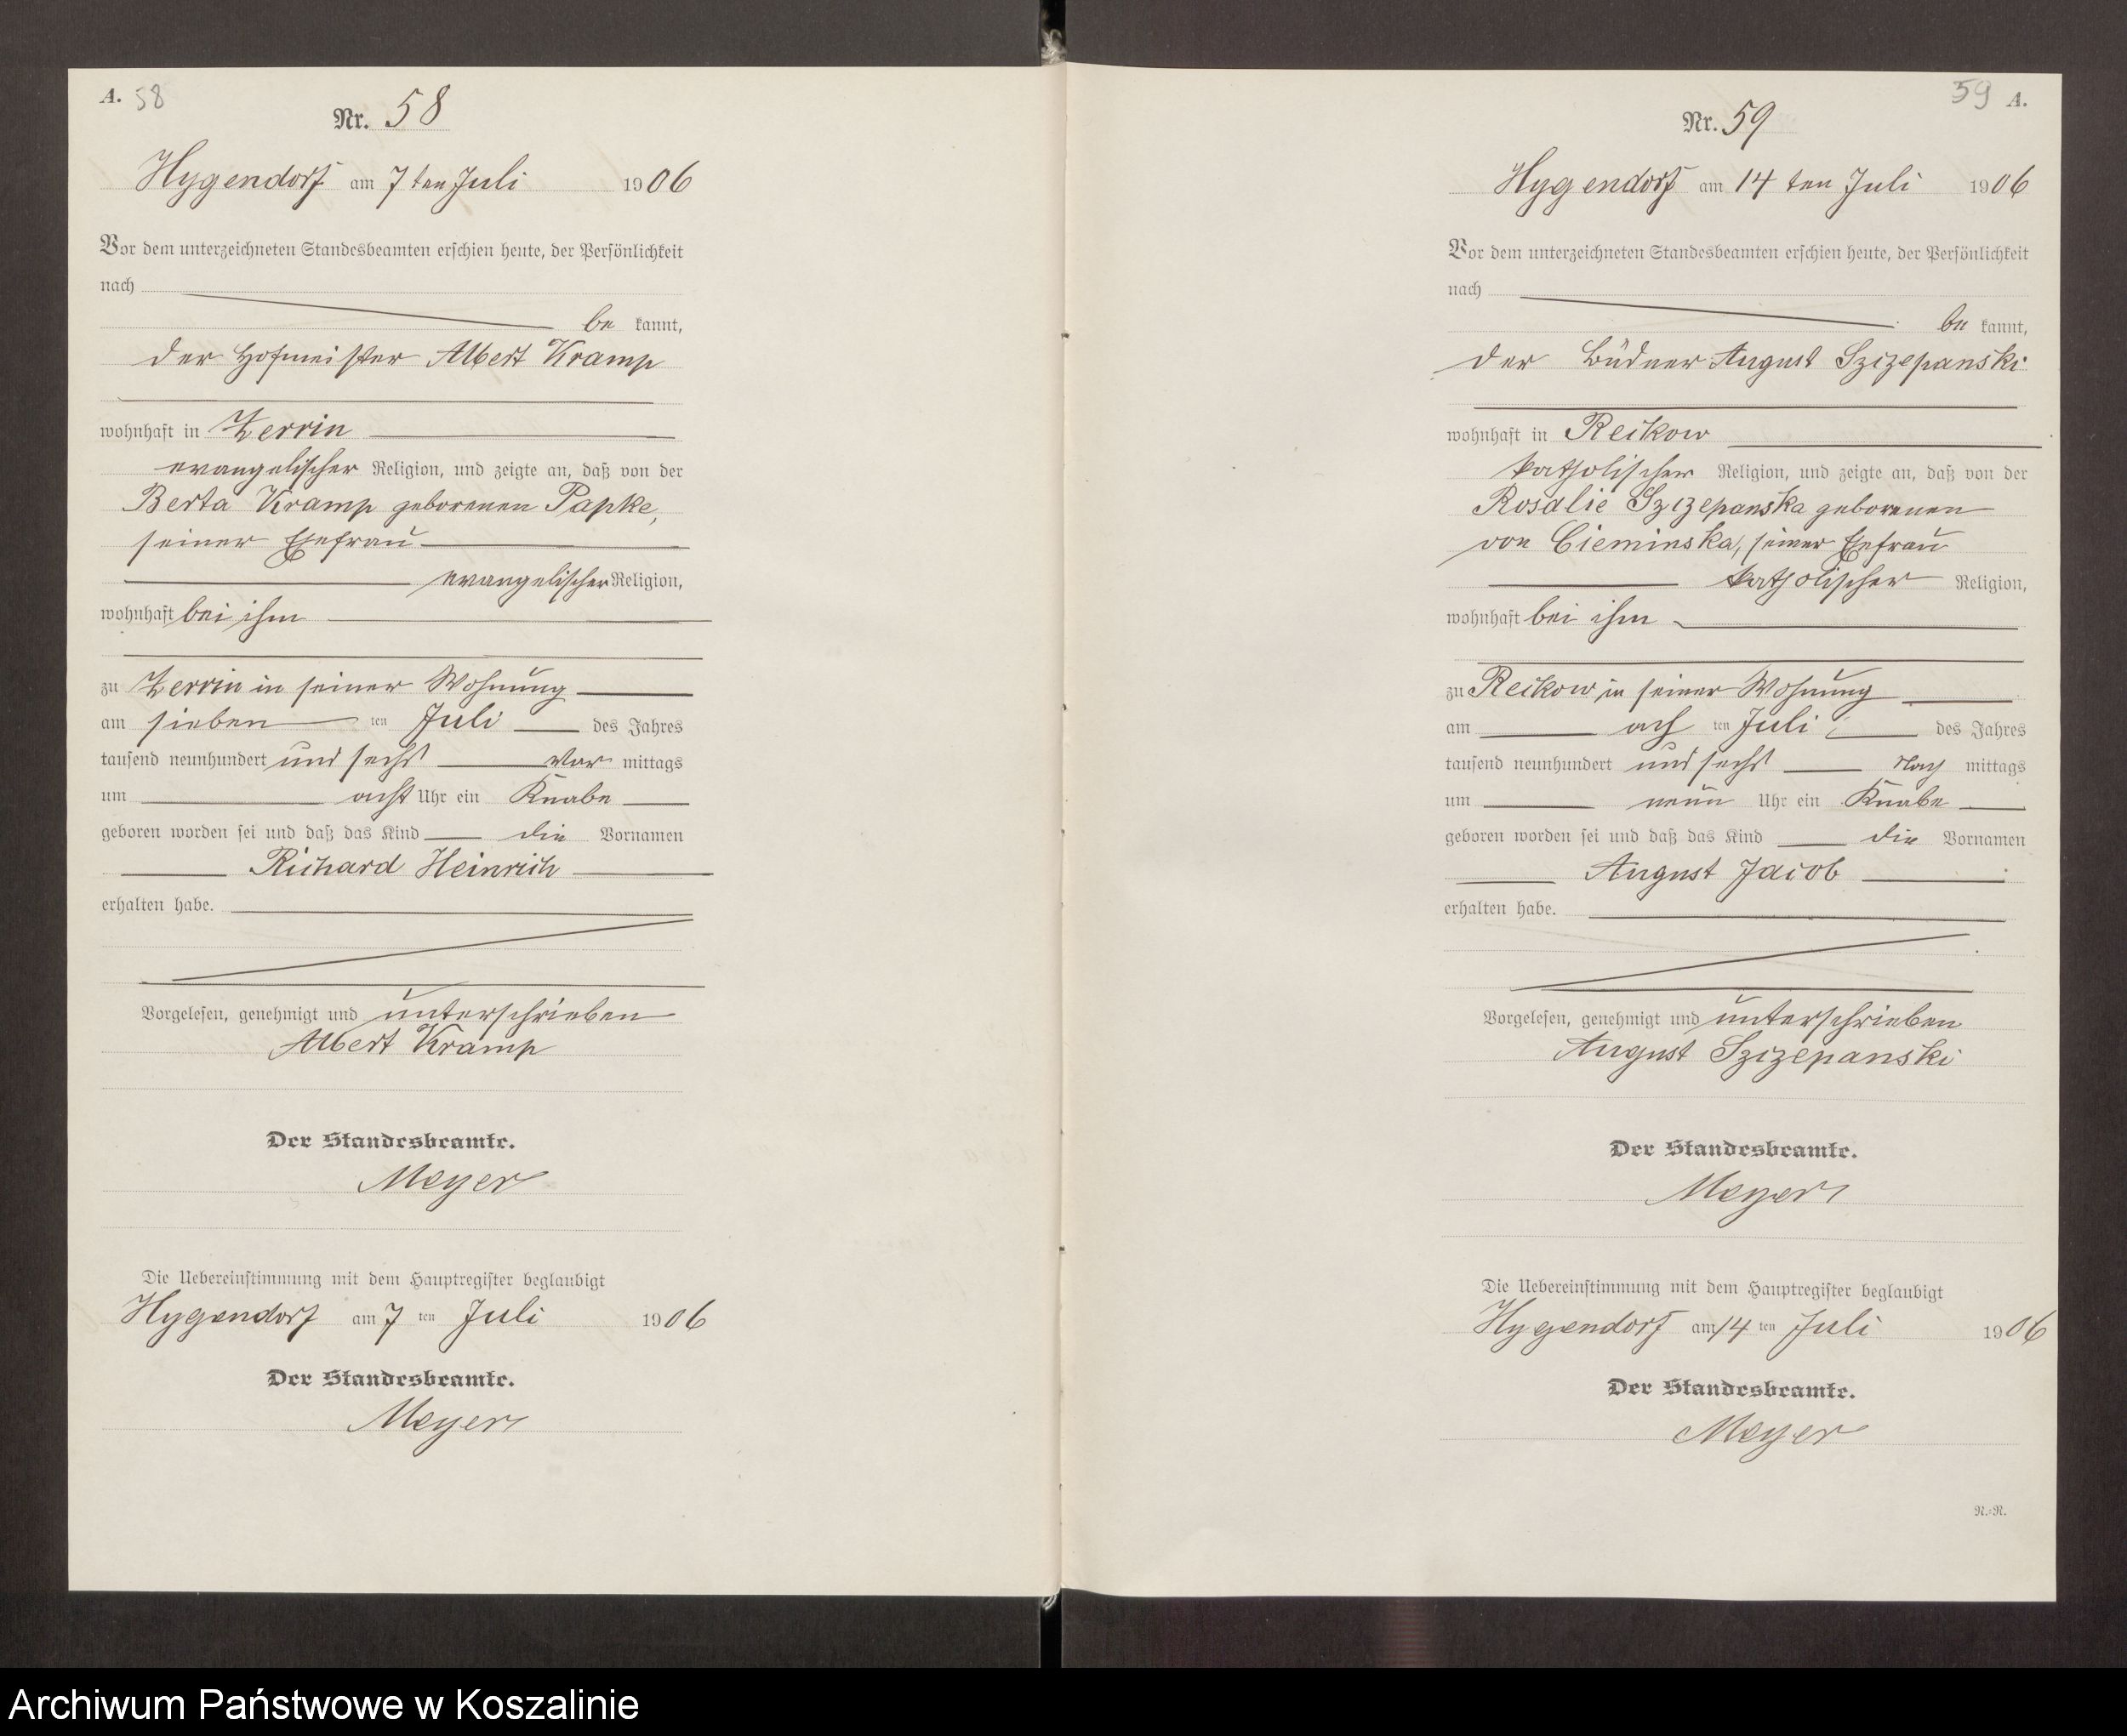 A. 58
Nr. 58
Hygendorf am 7ten Juli 1906
Vor dem unterzeichneten Standesbeamten erschien heute, der Persönlichkeit
nach
be kannt,
der Hofmeister Albert Kramp
wohnhaft in Zerrin
evangelischer Religion, und zeigte an, daß von der
Berta Kramp geborenen Papke,
seiner Ehefrau
evangelischer Religion,
wohnhaft bei ihm
zu Zerrin in seiner Wohnung
am sieben ten Juli des Jahres
tausend neunhundert und sechs Vor mittags
um acht Uhr ein Knabe
geboren worden sei und daß das Kind die Vornamen
Richard Heinrich
erhalten habe.
Vorgelesen, genehmigt und unterschrieben
Albert Kramp
Der Standesbeamte.
Meyer
Die Uebereinstimmung mit dem Hauptregister beglaubigt
Hygendorf am 7 ten Juli 1906
Der Standesbeamte.
Meyer
59 A.
Nr. 59
Hygendorf am 14 ten Juli 1906
Vor dem unterzeichneten Standesbeamten erschien heute, der Persönlichkeit
nach
be kannt,
der Büdner August Szizepanski
wohnhaft in Reikow
katholischer Religion, und zeigte an, daß von der
Rosalie Szizepanska geborenen
von Cieminska, seiner Ehefrau
katholischer Religion,
wohnhaft bei ihm
zu Reikow in seiner Wohnung
am ach ten Juli des Jahres
tausend neunhundert und sechs Nach mittags
um neun Uhr ein Knabe
geboren worden sei und daß das Kind die Vornamen
August Jacob
erhalten habe.
Vorgelesen, genehmigt und unterschrieben
August Szizepanski
Der Standesbeamte.
Meyer
Die Uebereinstimmung mit dem Hauptregister beglaubigt
Hygendorf am 14 ten Juli 1906
Der Standesbeamte.
Meyer
N.=N.
Archiwum Państwowe w Koszalinie